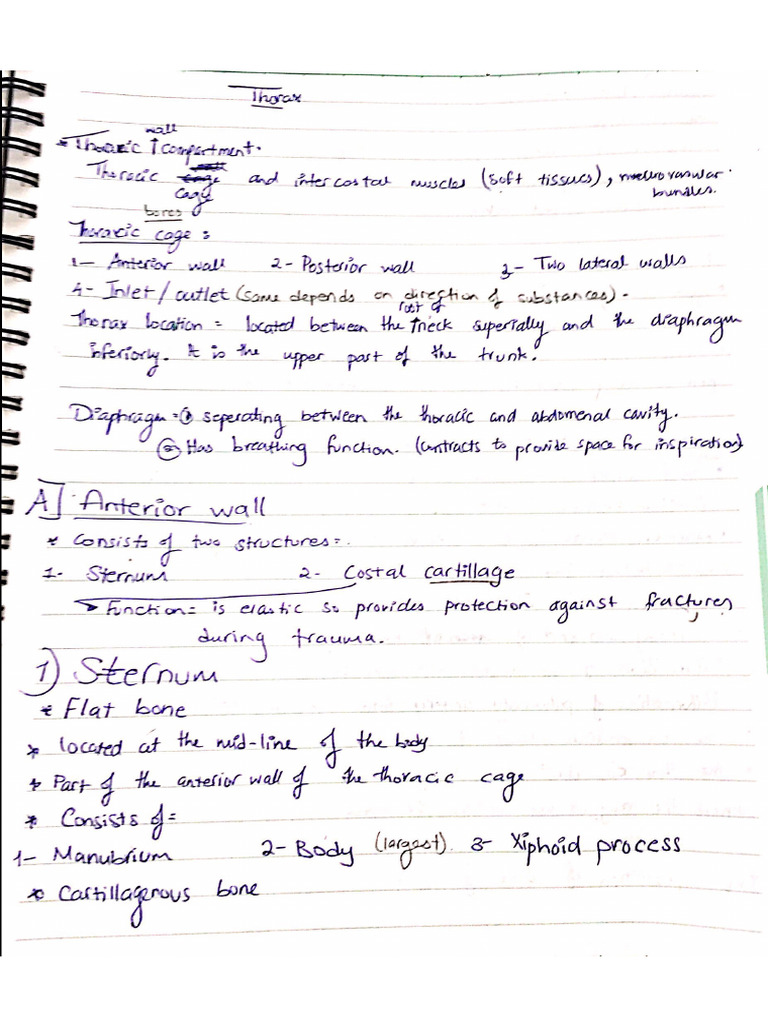 Thorax
* Thoracic wall compartment.
Thoracic cage and intercostal muscles (soft tissues), neurovasular bundles.
bones
Thoracic cage =
1- Anterior wall 2- Posterior wall 3- Two lateral walls
4- Inlet / outlet (same depends on direction of substances).
Thorax location = located between the root of neck superially and the diaphragm
inferiorly. It is the upper part of the trunk.
Diaphragm = ① seperating between the thoracic and abdomenal cavity.
② Has breathing function. (contracts to provide space for inspiration)
A] Anterior wall
* Consists of two structures =
1- Sternum 2- Costal cartillage
Function = is elastic so provides protection against fractures
during trauma.
1) Sternum
* Flat bone
* located at the mid-line of the body
* Part of the anterior wall of the thoracic cage
* Consists of =
1- Manubrium 2- Body (largest) 3- Xiphoid process
* Cartillagenous bone